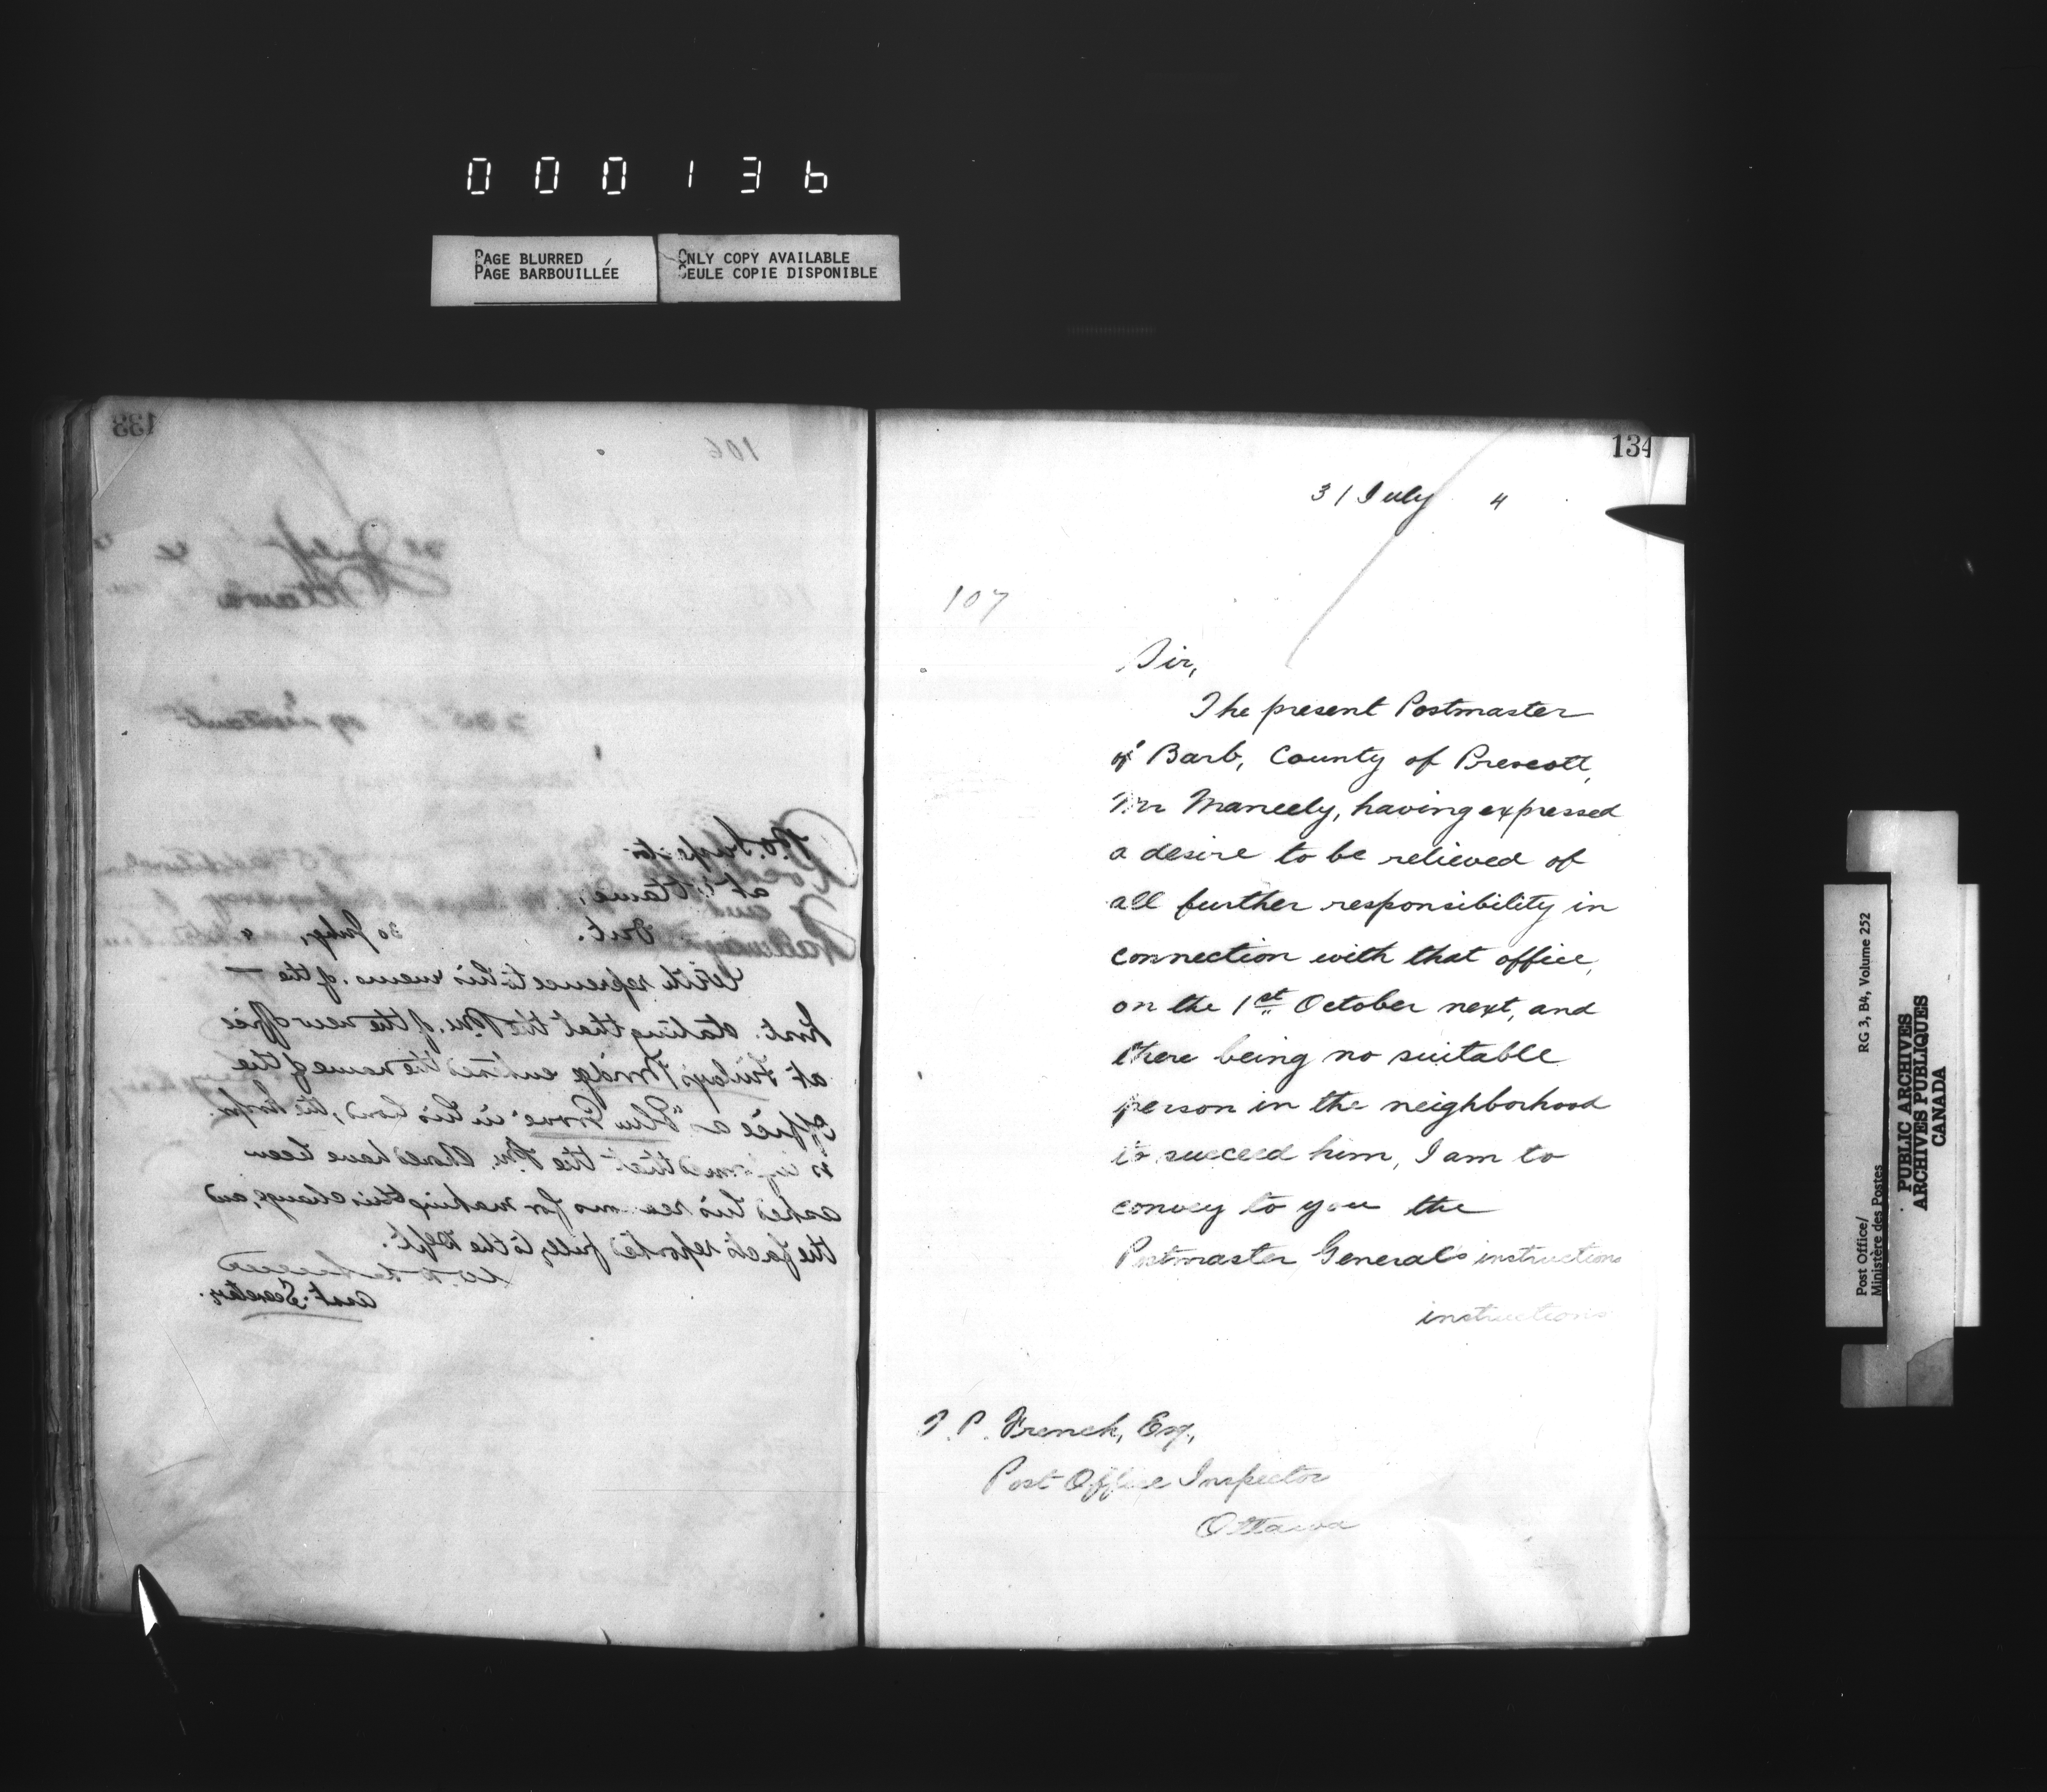 000136
PAGE BLURRED
PAGE BARBOUILLÉE
ONLY COPY AVAILABLE
SEULE COPIE DISPONIBLE
133
106
Ottawa
P.O. Inspector
at Ottawa,
Ont. 30 July, 4
With reference to his memo. of the
inst. stating that the P.M. of the new office
at Finlay's Bridge entered the name of the
Office as "Elm Grove" in his bond, the Inspr.
is informed that the P.M. should have been
asked his reasons for making this change, and
the facts reported fully to the Dept.
Asst. Secretary.
134
31 July 4
107
Sir,
The present Postmaster
of Barb, County of Prescott,
Mr Maneely, having expressed
a desire to be relieved of
all further responsibility in
connection with that office,
on the 1st October next, and
there being no suitable
person in the neighborhood
to succeed him, I am to
convey to you the
Postmaster General's instructions
instructions
T. P. French, Esq.,
Post Office Inspector
Ottawa
Post Office/
Ministère des Postes
RG 3, B4, Volume 252
PUBLIC ARCHIVES
ARCHIVES PUBLIQUES
CANADA